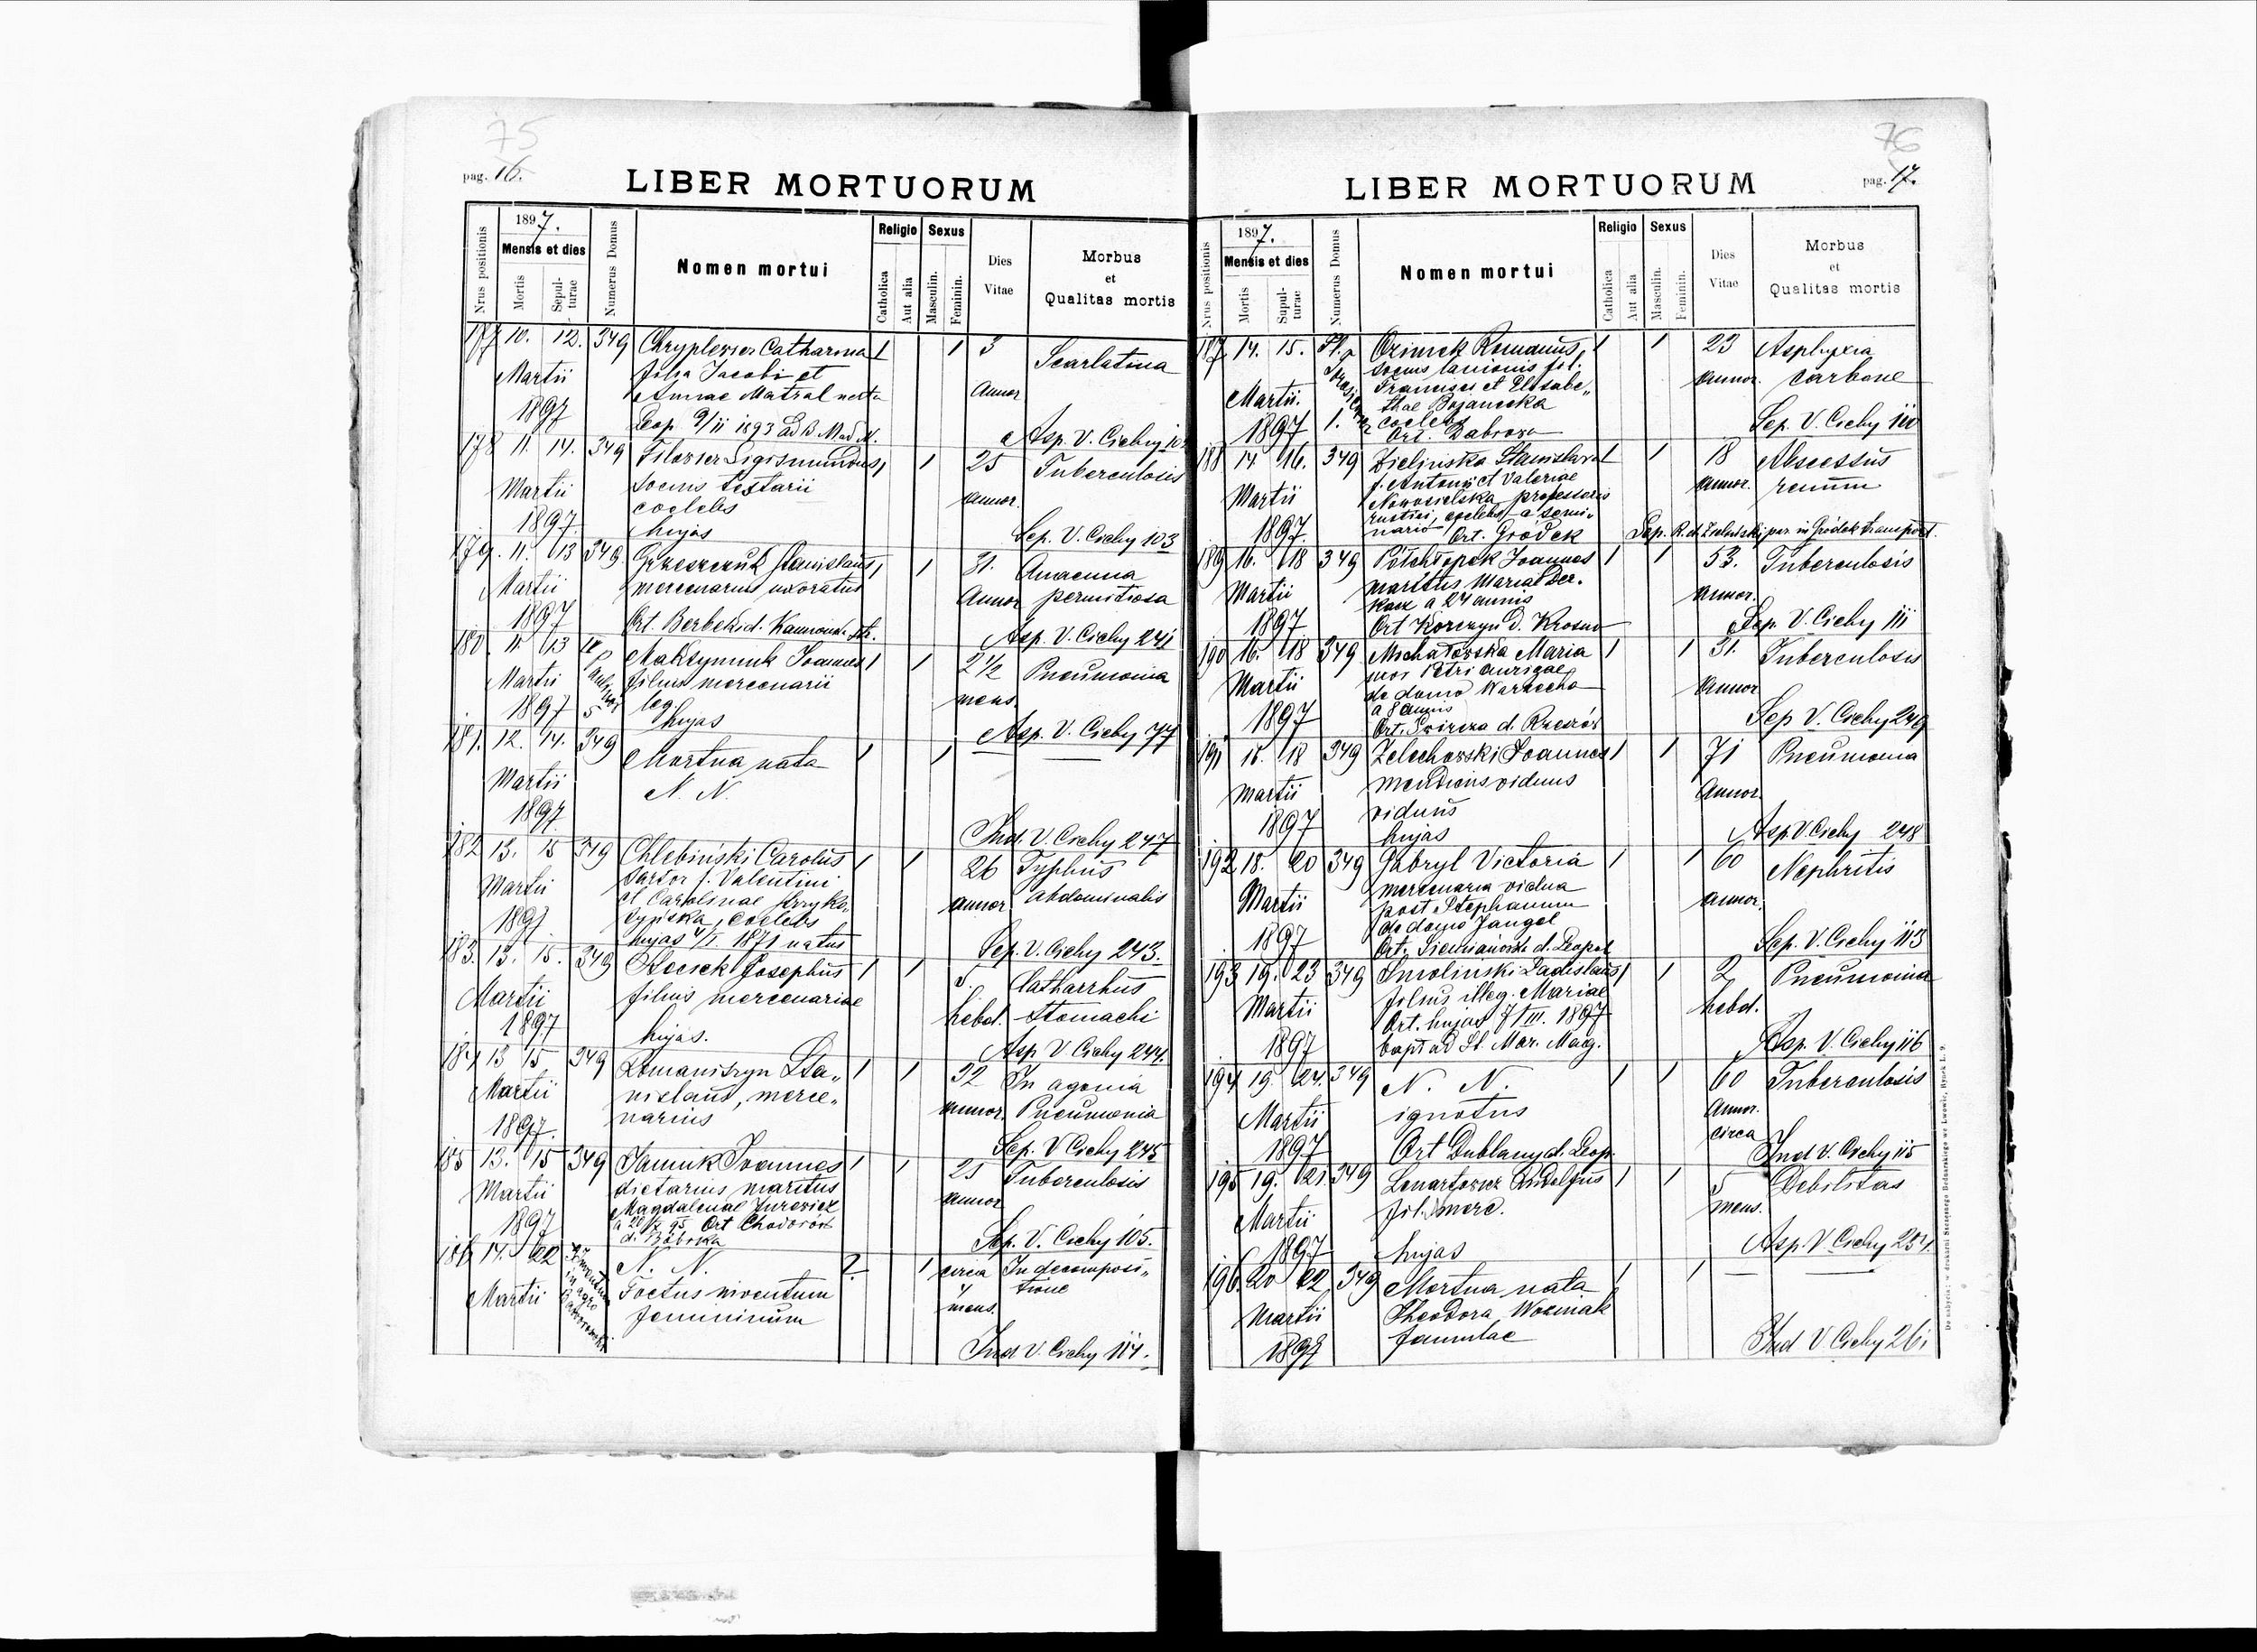 75
pag. 16.
LIBER MORTUORUM
Nrus positionis
1897.
Mensis et dies
Mortis
Sepulturae
Numerus Domus
Nomen mortui
Religio
Catholica
Aut alia
Sexus
Masculin.
Feminin.
Dies
Vitae
Morbus
et
Qualitas mortis
177 10. 12. 349 Catharina 1 1 3 Scarlatina
Martii filia Jacobi et Annor
1897 Annae nata
Leop 9/11 1893 ad B. M. Asp. V. Cichy
178 11. 14. 349 Sigismundus, 1 25 Tuberculosis
Martii socius testarii annor.
1897 coelebs
hujas Sep. V. Cichy 103
179. 11. 13 349. Grzeszczuk Stanislaus, 1 31. Anaemia
Martii mercenarius uxoratus Annor pernitiosa
1897 Ort. Berbeki d. Asp. V. Cichy 241
180 11. 13 Maksymiuk Joannes 1 1 2 1/2 Pneumonia
Martii filius mercenarii mens.
1897 5 leg
hujas Asp. V. Cichy 77
181. 12. 14. 349 Mortua nata 1 1
Martii N. N.
1897
Ind. V. Cichy 247
182 13. 15 349 Chlebiński Carolus 1 1 26 Typhus
Martii sartor f. Valentini annor abdominalis
1897 et Carolinae
coelebs
hujas 4/I. 1871 natus Sep. V. Cichy 243.
183. 13. 15. 349 Josephus 1 1 5. Catharrhus
Martii filius mercenariae hebd. stomachi
1897 hujas. Asp V Cichy 244.
184 13 15 349 Romaniszyn Sta„ 1 1 32 In agonia
Martii nislaus, merce„ annor. Pneumonia
1897. narius Sep. V Cichy 245
185 13. 15 349 Joannes 1 1 25 Tuberculosis
Martii dietarius maritus annor
1897 Magdalenae Jurewicz
Ort Chodorów
d. Bóbrka Sep. V. Cichy 105.
186 14. 22 Inventum in agro N. N. 2. 1 circa In decomposi„
Martii Foetus inventum 4 tione
femininum mens.
Ind V. Cichy 114.
76
pag. 17.
LIBER MORTUORUM
Nrus positionis
1897.
Mensis et dies
Mortis
Sapulturae
Numerus Domus
Nomen mortui
Religio
Catholica
Aut alia
Sexus
Masculin.
Feminin.
Dies
Vitae
Morbus
et
Qualitas mortis
187 14. 15. Pl. Ozimek Romanus, 1 1 23 Asphyxia
socius lanionis fil. annor. carbone
Martii. Francisci et Elisabe„
thae Bojanecka
1897 1. coelebs Sep. V. Cichy 110
Ort. Dabrowa
188 14 16. 349 Zielinska Stanislava 1 1 18 Abscessus
Martii f. Antonii et Valeriae annor. renum
Nowosielska professoris
1897. coelebs a semi„
nario Ort. Gródek Sep. R. d. in Gródek transport.
189 16. 18 349 Półchłopek Joannes 1 1 53. Tuberculosis
Martii maritus Maria Der„ annor.
kacz a 24 annis
1897 Ort Korczyn d. Krosno Sep. V. Cichy 111
190 16. 18 349 Michałowska Maria 1 1 31. Tuberculosis
Martii uxor Petri aurigae annor
de domo Warzecha
1897 a 8 annis
Ort. d. Rzeszów Sep V. Cichy 249
191 18 349 Zelechowski Joannes 1 1 71 Pneumonia
Martii mendicus viduus Annor.
viduus
1897 hujas Asp. V. Cichy 248
192 18. 20 349 Gabryl Victoria 1 1 60 Nephritis
Martii mercenaria vidua annor.
post Stephanum
1897 de domo Jangol
Ort. d. Leopol Sep. V. Cichy 113
193 19. 23 349 Smolinski Ladislaus 1 1 2 Pneumonia
Martii filius illeg. Mariae hebd.
Ort. hujas 7/III. 1897
1897 bapt ad St. Mar. Mag. Asp. V. Cichy 116
194 19. 24. 349 N. N. 1 1 60 Tuberculosis
Martii ignotus Annor.
circa
1897 Ort Dublany d. Leop. Ind V. Cichy 115
195 19. 21 349 Lenartowicz Rudolfus 1 1 5 Debilitas
Martii fil. merc. mens.
1897 hujas Asp. V. Cichy 254
196. 20 22 349 Mortua nata 1 1
Martii Theodora Wozniak
1897 famulae Ind V Cichy 261